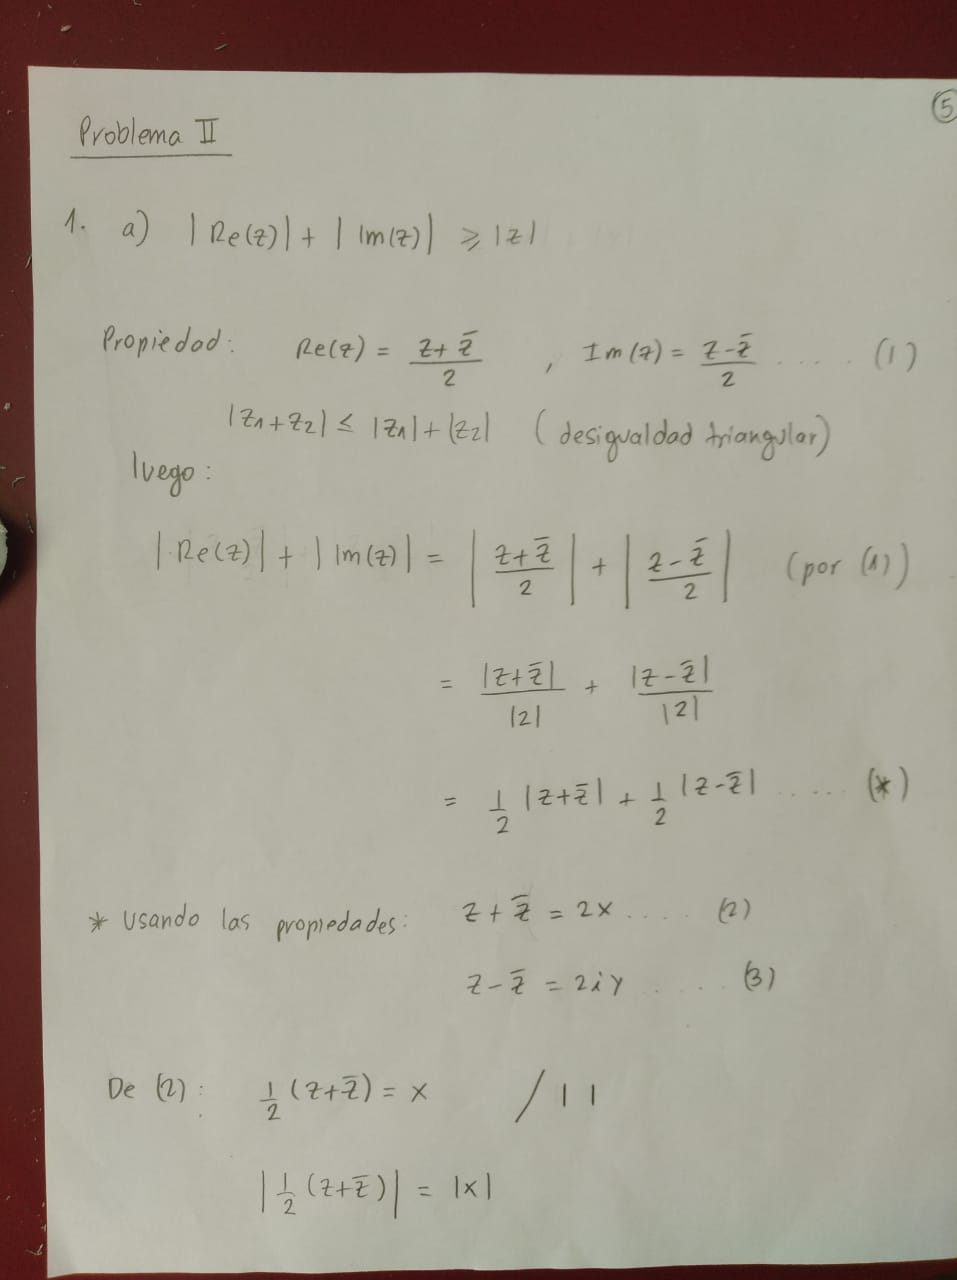 5
Problema II
1. a) |Re(z)| + |Im(z)| ⩾ |z|
Propiedad: Re(z) = (z + z̄)/2 , Im(z) = (z - z̄)/2 .... (1)
|z₁ + z₂| ≤ |z₁| + |z₂| (desigualdad triangular)
luego:
|Re(z)| + |Im(z)| = |(z + z̄)/2| + |(z - z̄)/2| (por (1))
= |z + z̄|/|2| + |z - z̄|/|2|
= 1/2 |z + z̄| + 1/2 |z - z̄| ..... (*)
* Usando las propiedades: z + z̄ = 2x .... (2)
z - z̄ = 2iy ..... (3)
De (2): 1/2 (z + z̄) = x / | |
|1/2 (z + z̄)| = |x|